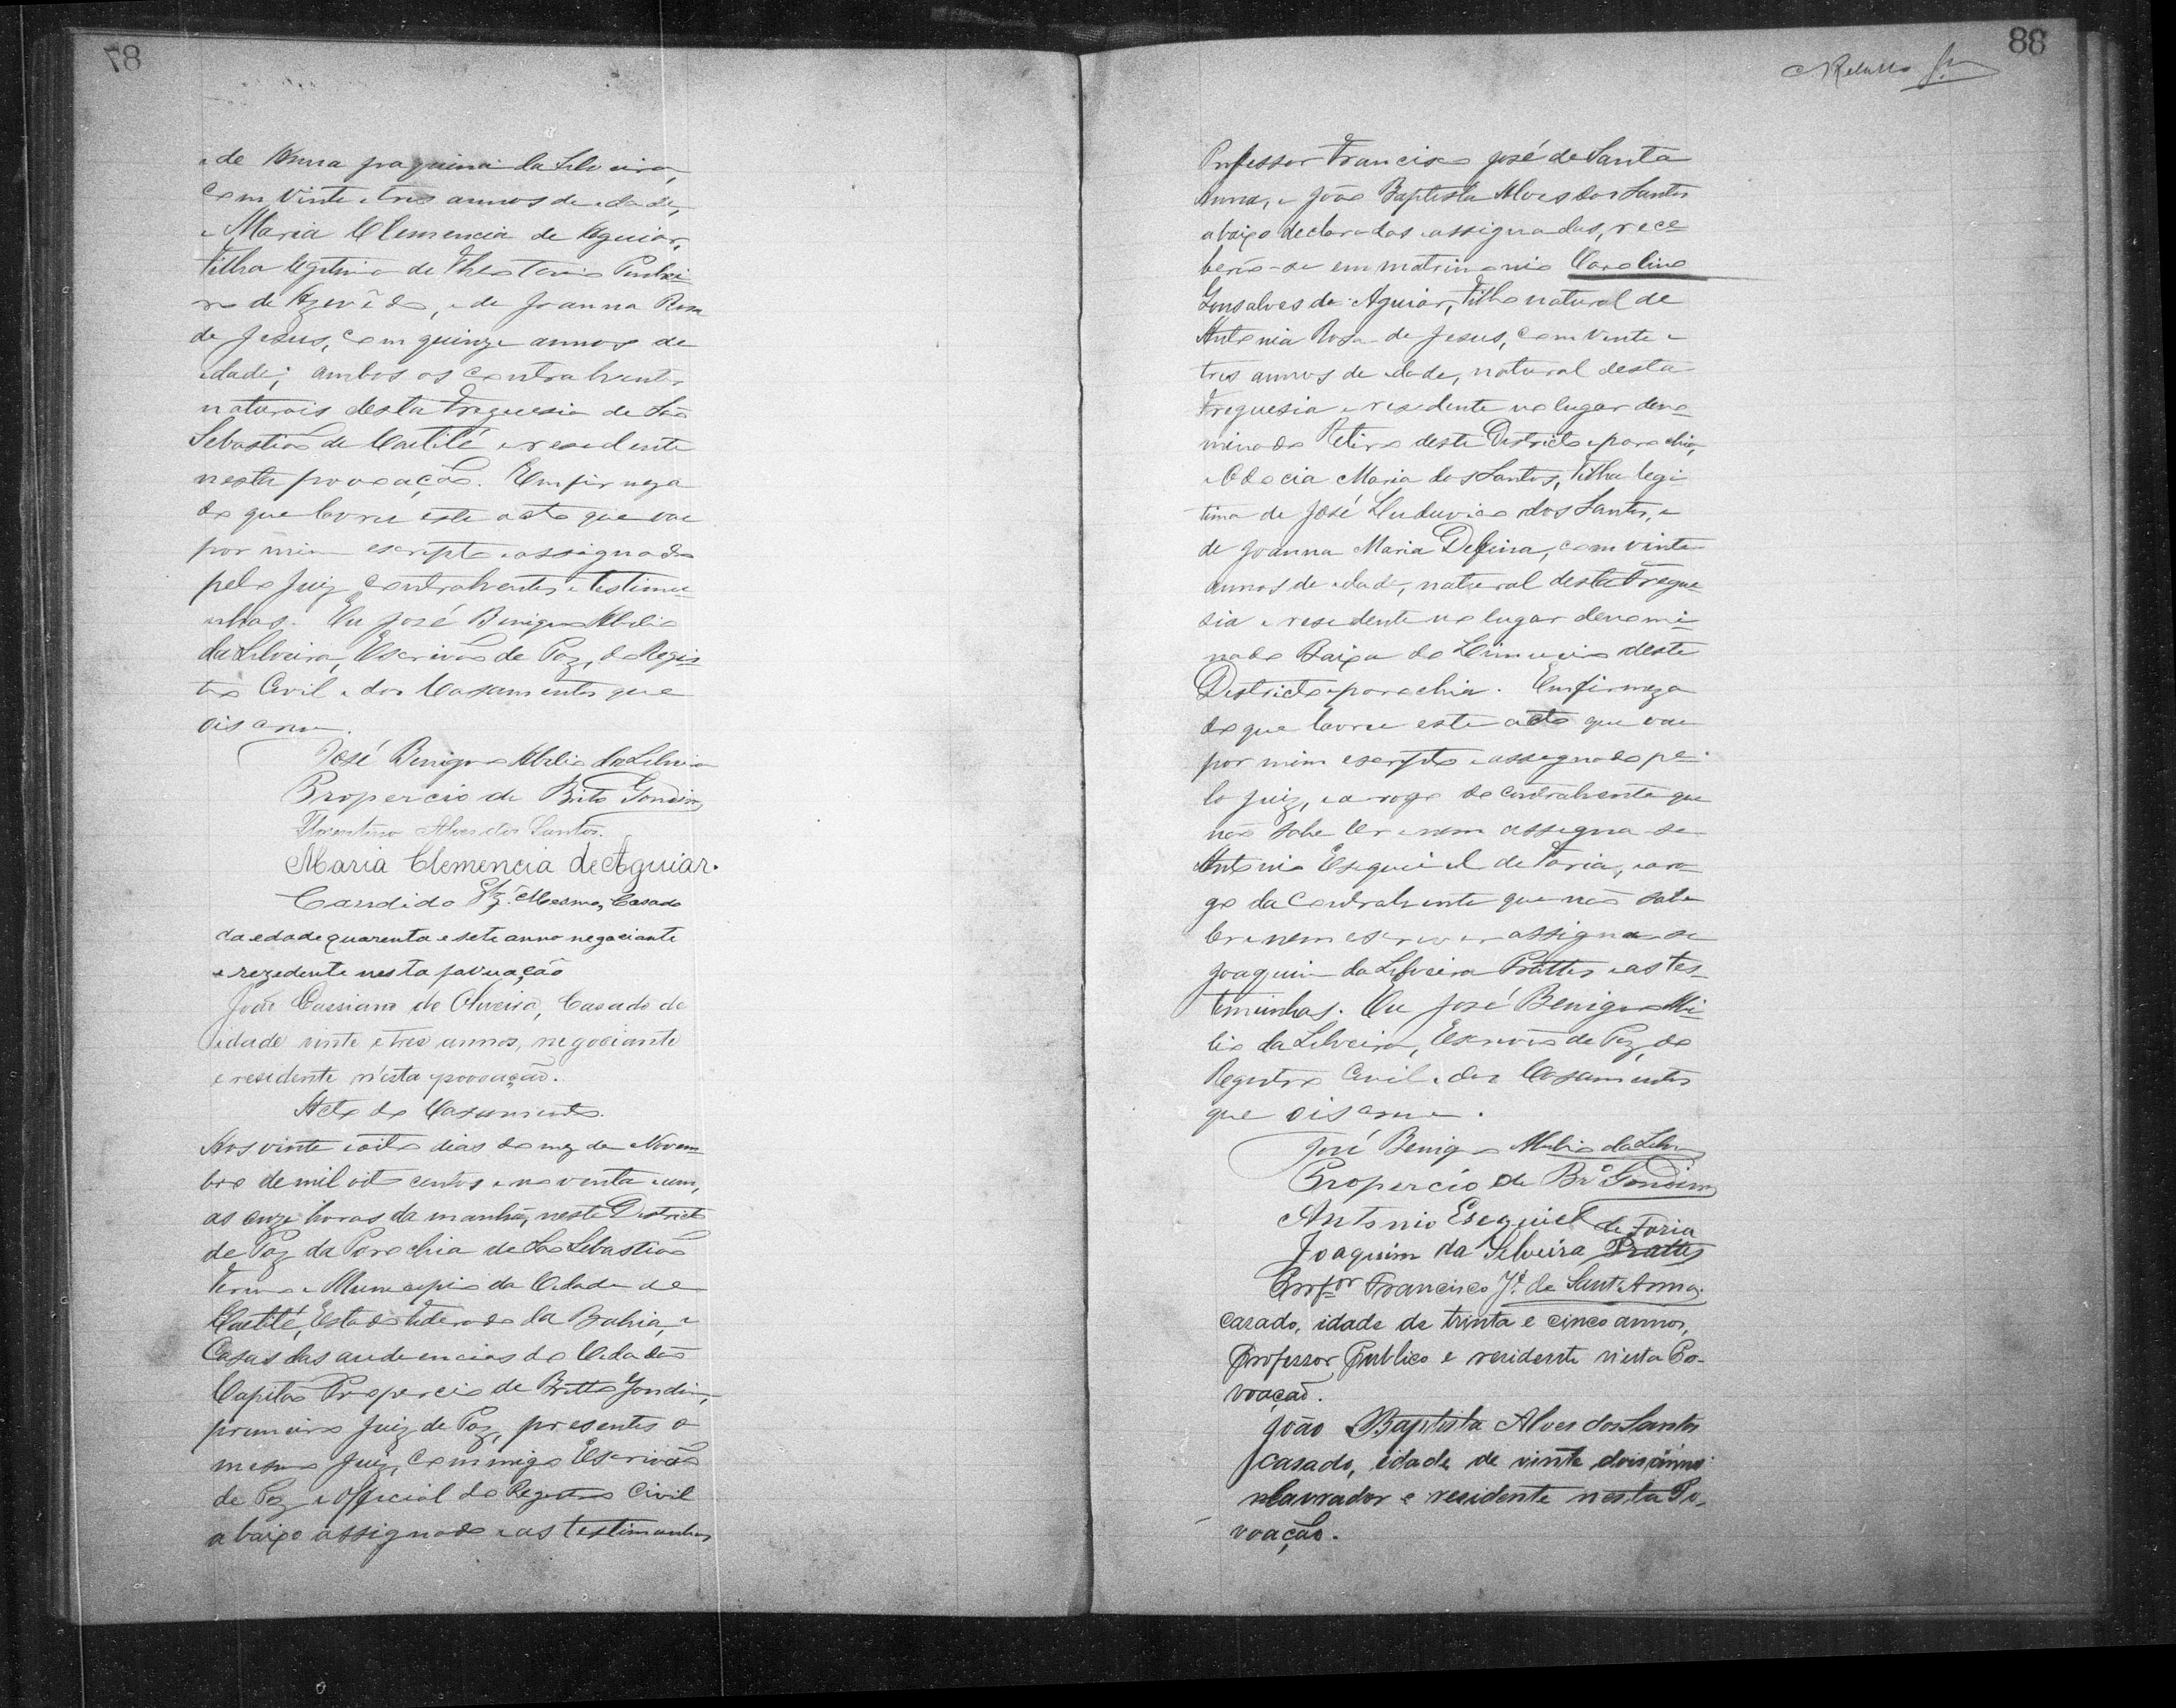 87
e de Anna Joaquina da Silveira,
com vinte e tres annos de edade,
e Maria Clemencia de Aguiar,
filha legitima de Theotonio Pinhei-
ro de Azevêdo, e de Joanna Rosa
de Jesus, com quinze annos de
edade; ambos os contrahentes
naturais desta Freguesia de São
Sebastião de Caetité e residente
nesta povoação. Em firmeza
do que lavrei este acto que vae
por mim escripto e assignado
pelo Juiz, contrahentes e testimu-
nhas. Eu José Benigno Abilio
da Silveira, Escrivão de Paz, do Regis-
tro Civil e dos Casamentos que
o escrevi.
José Benigno Abilio da Silveira
Propercio de Brito Gondim
Florentino Alves dos Santos.
Maria Clemencia de Aguiar.
Candido Casado
da edade quarenta e sete anno negociante
e rezedente nesta povuação
João Cassiano de Oliveira, Casado de
idade vinte e tres annos, negociante
e residente n'esta povoação.
Acto de Casamento.
Aos vinte e oito dias do mez de Novem-
bro de mil oito centos e noventa e um,
as onze horas da manhã, neste Districto
de Paz da Parochia de São Sebastião
Termo e Municipio da Cidade de
Caetité, Estado Federado da Bahia, e
Casas das audiencias do Cidadão
Capitão Propercio de Britto Gondim,
primeiro Juiz de Paz, presentes o
mesmo Juiz, commigo Escrivão
de Paz e Official do Registro Civil
abaixo assignado e as testimunhas
88
Professor Francisco José de Santa
Anna, e João Baptista Alves dos Santos
abaixo declarados e assignados, rece-
berão-se em matrimonio Carolino
Gonsalves de Aguiar, filho natural de
Antonia Rosa de Jesus, com vinte e
tres annos de edade, natural desta
Freguesia e residente no lugar deno-
minado Retiro deste Districto e parochia,
e Maria dos Santos, filha legi-
tima de José Luduvico dos Santos, e
de Joanna Maria Delfina, com vinte
annos de edade, natural desta Fregue-
sia e residente no lugar denomi-
nado Baixa do deste
Districto e parochia. Em firmeza
do que lavrei este acto que vae
por mim escripto e assegnado pe-
lo Juiz, e a rogo do contrahente que
não sabe ler e nem assegna-se
Antonio Esequiel de Faria, e a ro-
go da contrahente que não sabe
ler e nem escrever assigna-se
Joaquim da Silveira Prattes e as tes-
timunhas. Eu José Benigno Abi-
lio da Silveira, Escrivão de Paz, do
Registro Civil e dos Casamentos
que o escrevi.
José Benigno Abilio da Silveira
Propercio de Brº Gondim
Antonio Esequiel de Faria
Joaquim da Silveira Prattes
Profor Francisco Jé. de Sant'Anna.
casado, idade de trinta e cinco annos,
Professor Publico e residente n'esta Po-
voação.
João Baptista Alves dos Santos
casado, idade de vinte dois annos
lavrador e residente nesta Po-
voação.